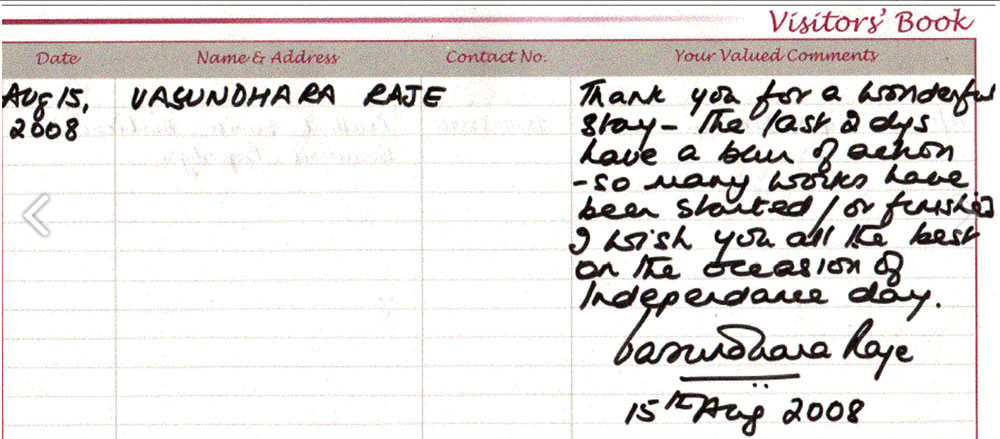 Visitors' Book
Date Name & Address Contact No. Your Valued Comments
Aug 15, VASUNDHARA RAJE Thank you for a wonderful
2008 stay - The last 2 dys
have a blur of action
- so many works have
been started / or finished
I wish you all the best
on the occasion of
Independance day.
Vasundhara Raje
15th Aug 2008